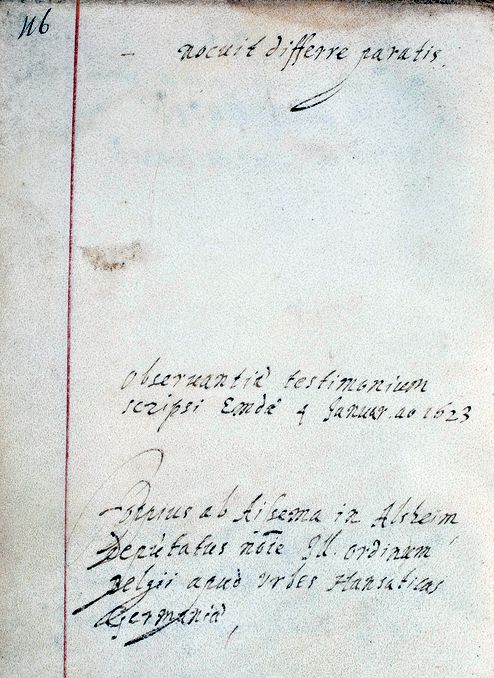 116
– nocuit differre paratis
observantiæ testimonium
scripsi Emdæ 4 Januar. ao 1623
ab Aisema in Alsheim,
deputatus noīe Ill. ordinum
Belgii apud Urbes Hanseaticas
Germaniæ,